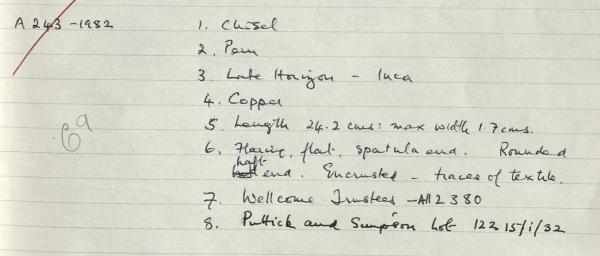 A 243 - 1982
1. Chisel
2. Peru
3. Late Horizon - Inca
4. Copper
5. Length 24.2 cms: max width 1.7 cms.
6. Flaring, flat, spatula end. Rounded
haft end. Encrusted - traces of textile.
6a
7. Wellcome Trustees - A112380
8. Puttick and Simpson lot 122 15/i/32